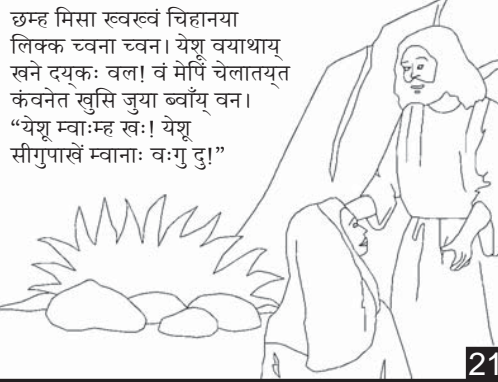 छम्ह मिसा ख्वख्वं चिहानया
लिक्क च्वना च्वन। येशू वयाथाय्
खने दय्कः वल! वं मेपिं चेलातय्‌त
कंवनेत खुसि जुया ब्वाँय् वन।
“येशू म्वाःम्ह खः! येशू
सीगुपाखें म्वानाः वःगु दु!”
21